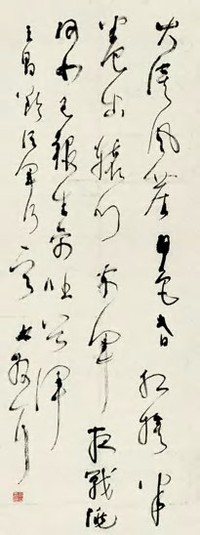 大漠風塵日色昏紅旗半
卷出轅門前軍夜戰洮
河北已報生禽吐谷渾
王昌齡從軍行